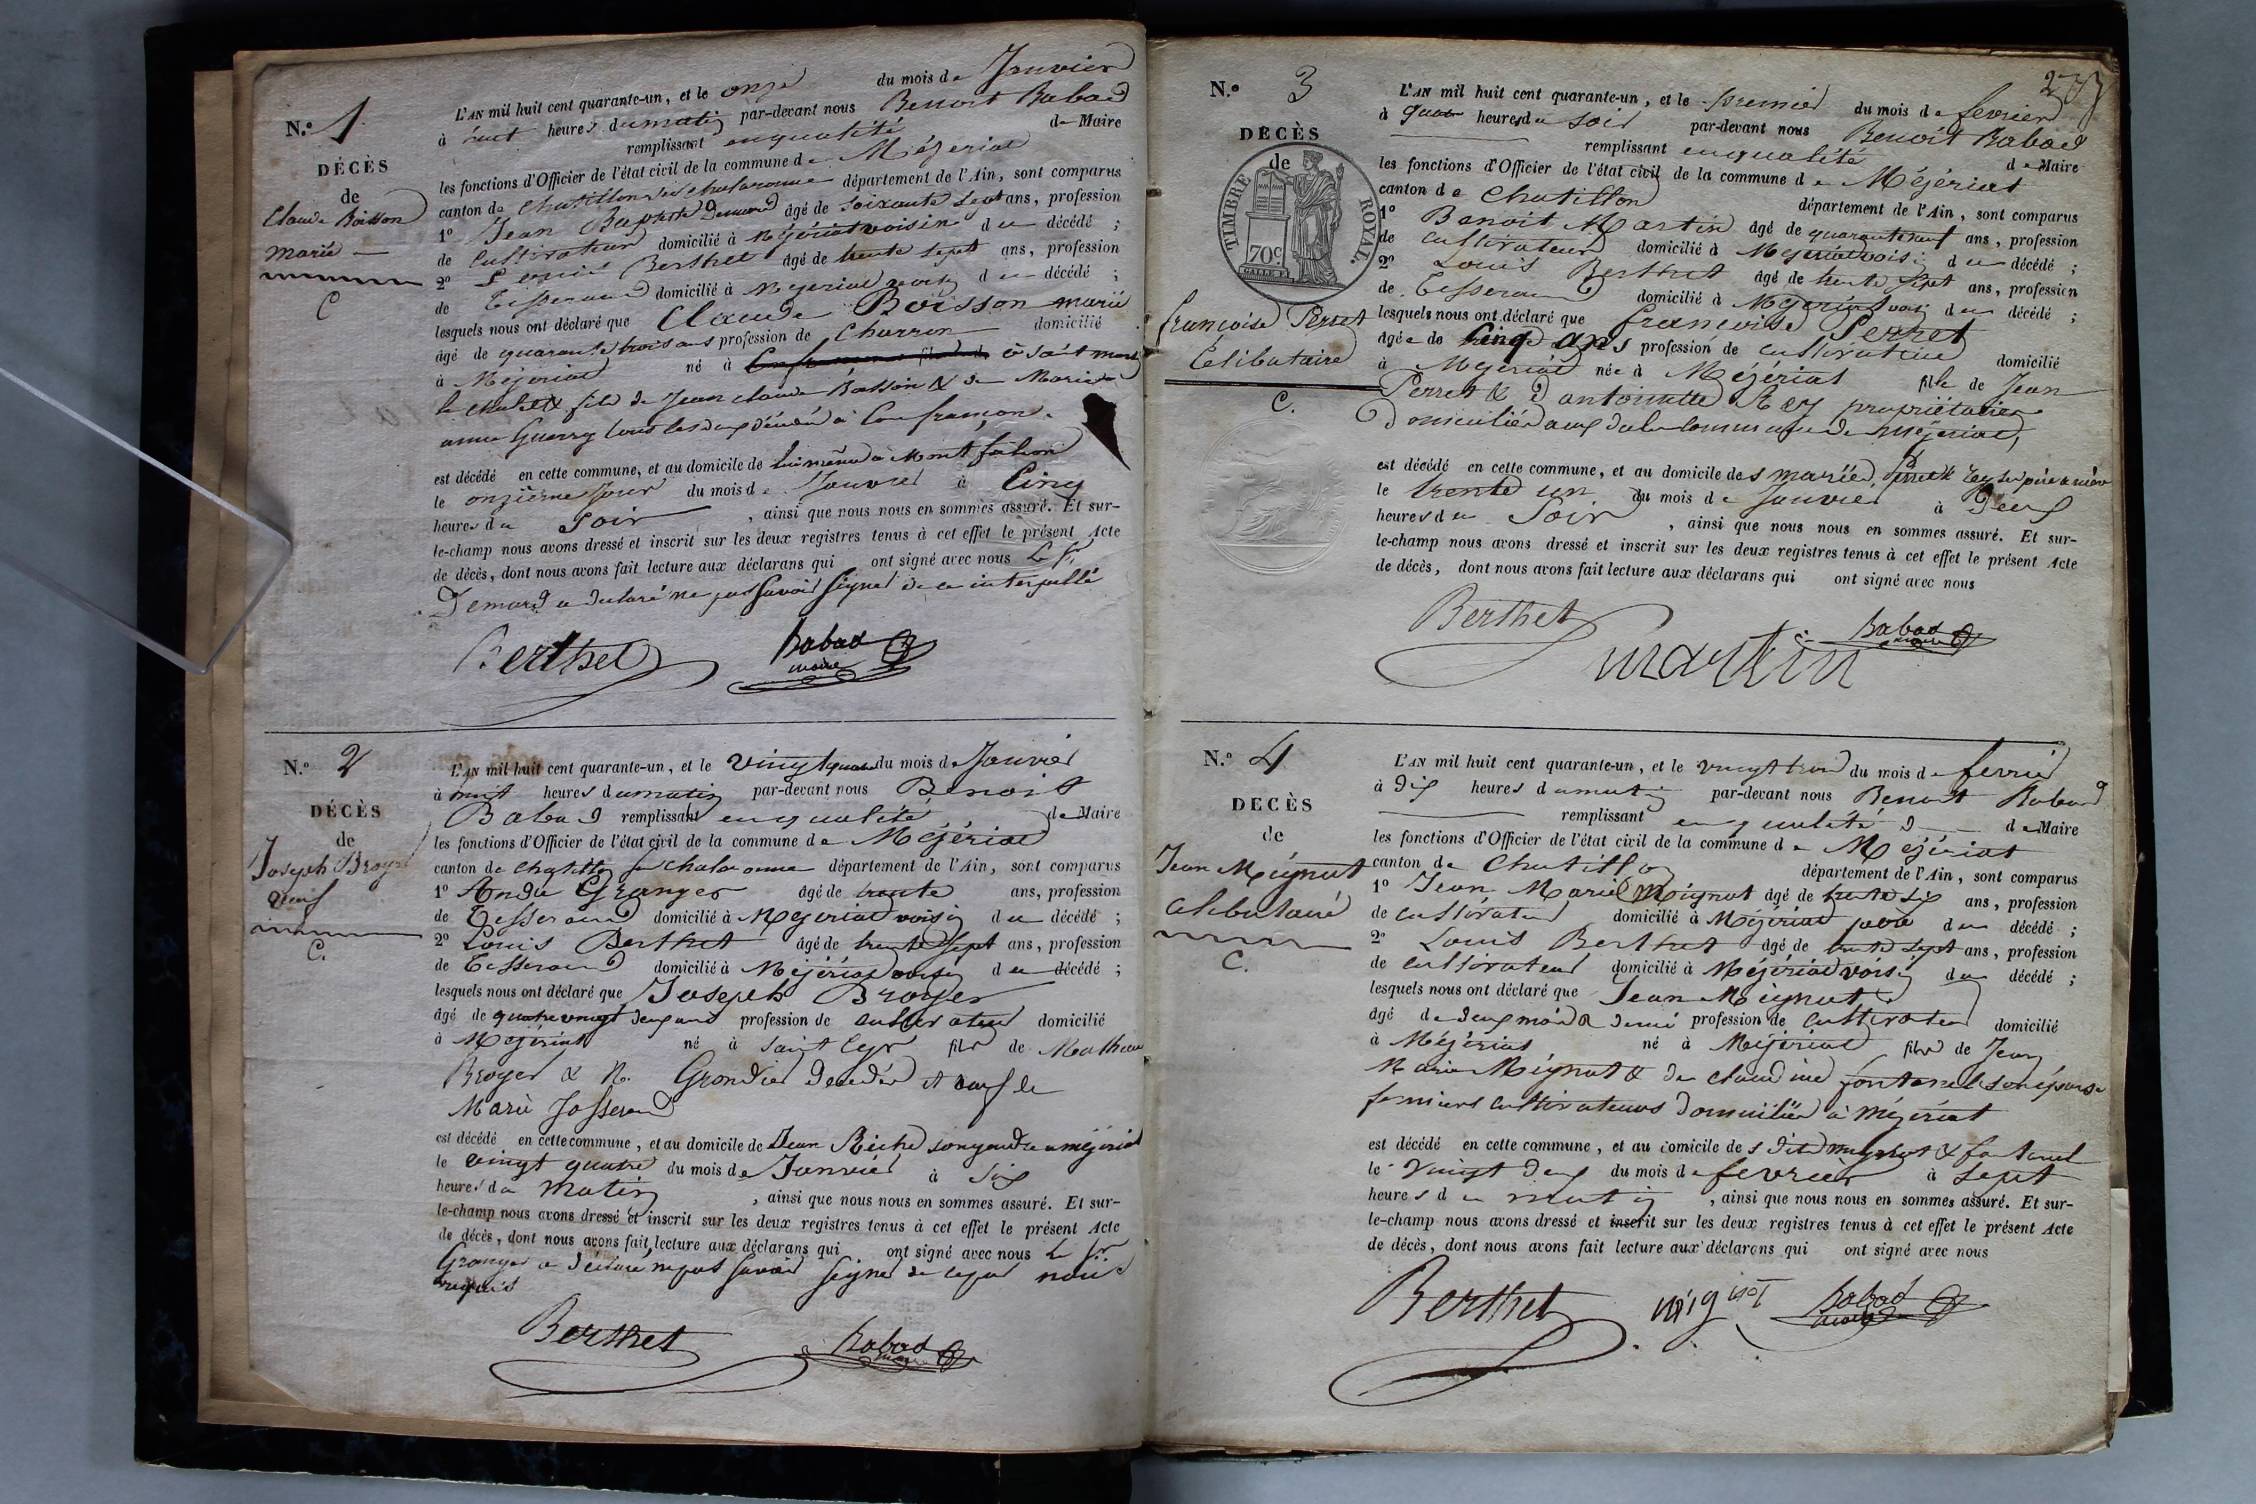 N.º 1
DÉCÈS
de
Claude Boisson
marié
C
L'AN mil huit cent quarante-un, et le onze du mois de Janvier
à huit heures du matin par-devant nous Benoit Babad
remplissant en qualité de Maire
les fonctions d'Officier de l'état civil de la commune de Mézériat
canton de Chatillon sur chalaronne département de l'Ain, sont comparus
1º Jean Baptiste âgé de soixante sept ans, profession
de Cultivateur domicilié à Mézériat voisin du décédé ;
2º Louis Berthet âgé de trente sept ans, profession
de Tisserand domicilié à Mézériat voisin du décédé ;
lesquels nous ont déclaré que Claude Boisson marié
âgé de quarante trois ans profession de Charron domicilié
à Mézériat né à à Saint
le chatel & fils de Jean claude Boisson & de Marie
anne Guerry tous les deux décédés à Confrançon.
est décédé en cette commune, et au domicile de lui même à Montfalcon
le onzième jour du mois de Janvier à Cinq
heures du Soir, ainsi que nous nous en sommes assuré. Et sur-
le-champ nous avons dressé et inscrit sur les deux registres tenus à cet effet le présent Acte
de décès, dont nous avons fait lecture aux déclarans qui ont signé avec nous Le Sr
a déclaré ne pas savoir signer de ce interpellé
Berthet Babad
maire
N.º 2
DÉCÈS
de
Joseph Broyer
veuf
C.
L'AN mil huit cent quarante-un, et le vingt quatre du mois de Janvier
à huit heures du matin par-devant nous Benoit
Babad remplissant en qualité de Maire
les fonctions d'Officier de l'état civil de la commune de Mézériat
canton de Chatillon sur Chalaronne département de l'Ain, sont comparus
1º André Granger âgé de trente ans, profession
de Tisserand domicilié à Mézériat voisin du décédé ;
2º Louis Berthet âgé de trente sept ans, profession
de Tisserand domicilié à Mézériat voisin du décédé ;
lesquels nous ont déclaré que Joseph Broyer
âgé de quatre vingt deux ans profession de cultivateur domicilié
à Mézériat né à Saint Cyr fils de Mathieu
Broyer & N. Grondier décédés et veuf de
Marie Josserand
est décédé en cette commune, et au domicile de Jean Riche son gendre à Mézériat
le vingt quatre du mois de Janvier à Six
heures du matin, ainsi que nous nous en sommes assuré. Et sur-
le-champ nous avons dressé et inscrit sur les deux registres tenus à cet effet le présent Acte
de décès, dont nous avons fait lecture aux déclarans qui ont signé avec nous Le Sr
Granger a déclaré ne pas savoir signer de ce par nous
requis
Berthet Babad
maire
N.º 3
DÉCÈS
de
TIMBRE ROYAL.
70c
Françoise Perret
Célibataire
C.
L'AN mil huit cent quarante-un, et le premier du mois de février
à quatre heures du soir par-devant nous Benoit Babad
remplissant en qualité de Maire
les fonctions d'Officier de l'état civil de la commune de Mézériat
canton de Chatillon département de l'Ain, sont comparus
1º Benoit Martin âgé de quarante neuf ans, profession
de Cultivateur domicilié à Mézériat voisin du décédé ;
2º Louis Berthet âgé de trente sept ans, profession
de Tisserand domicilié à Mézériat voisin du décédé ;
lesquels nous ont déclaré que françoise Perret
âgée de Cinq ans profession de cultivatrice domicilié
à Mézériat née à Mézériat fille de Jean
Perret & d'antoinette Rey propriétaires
Domiciliés aux de la Commune de Mézériat,
est décédé en cette commune, et au domicile des mariés Perret & Rey ses père & mère
le trente un du mois de Janvier à Deux
heures du Soir, ainsi que nous nous en sommes assuré. Et sur-
le-champ nous avons dressé et inscrit sur les deux registres tenus à cet effet le présent Acte
de décès, dont nous avons fait lecture aux déclarans qui ont signé avec nous
Berthet Babad
maire
martin
N.º 4
DÉCÈS
de
Jean Mignot
célibataire
C.
L'AN mil huit cent quarante-un, et le vingt trois du mois de février
à dix heures du matin par-devant nous Benoit Babad
remplissant en qualité de Maire
les fonctions d'Officier de l'état civil de la commune de Mézériat
canton de Chatillon département de l'Ain, sont comparus
1º Jean Marie Mignot âgé de trente six ans, profession
de cultivateur domicilié à Mézériat père du décédé ;
2º Louis Berthet âgé de trente sept ans, profession
de cultivateur domicilié à Mézériat voisin du décédé ;
lesquels nous ont déclaré que Jean Mignot
âgé de deux mois & demi profession de cultivateur domicilié
à Mézériat né à Mézériat fils de Jean
Marie Mignot & de claudine fontanel son épouse
fermiers cultivateurs domiciliés à Mézériat
est décédé en cette commune, et au domicile des dits mignot & fontanel
le vingt deux du mois de fevrier à sept
heures du matin, ainsi que nous nous en sommes assuré. Et sur-
le-champ nous avons dressé et inscrit sur les deux registres tenus à cet effet le présent Acte
de décès, dont nous avons fait lecture aux déclarans qui ont signé avec nous
Berthet mignot Babad
maire